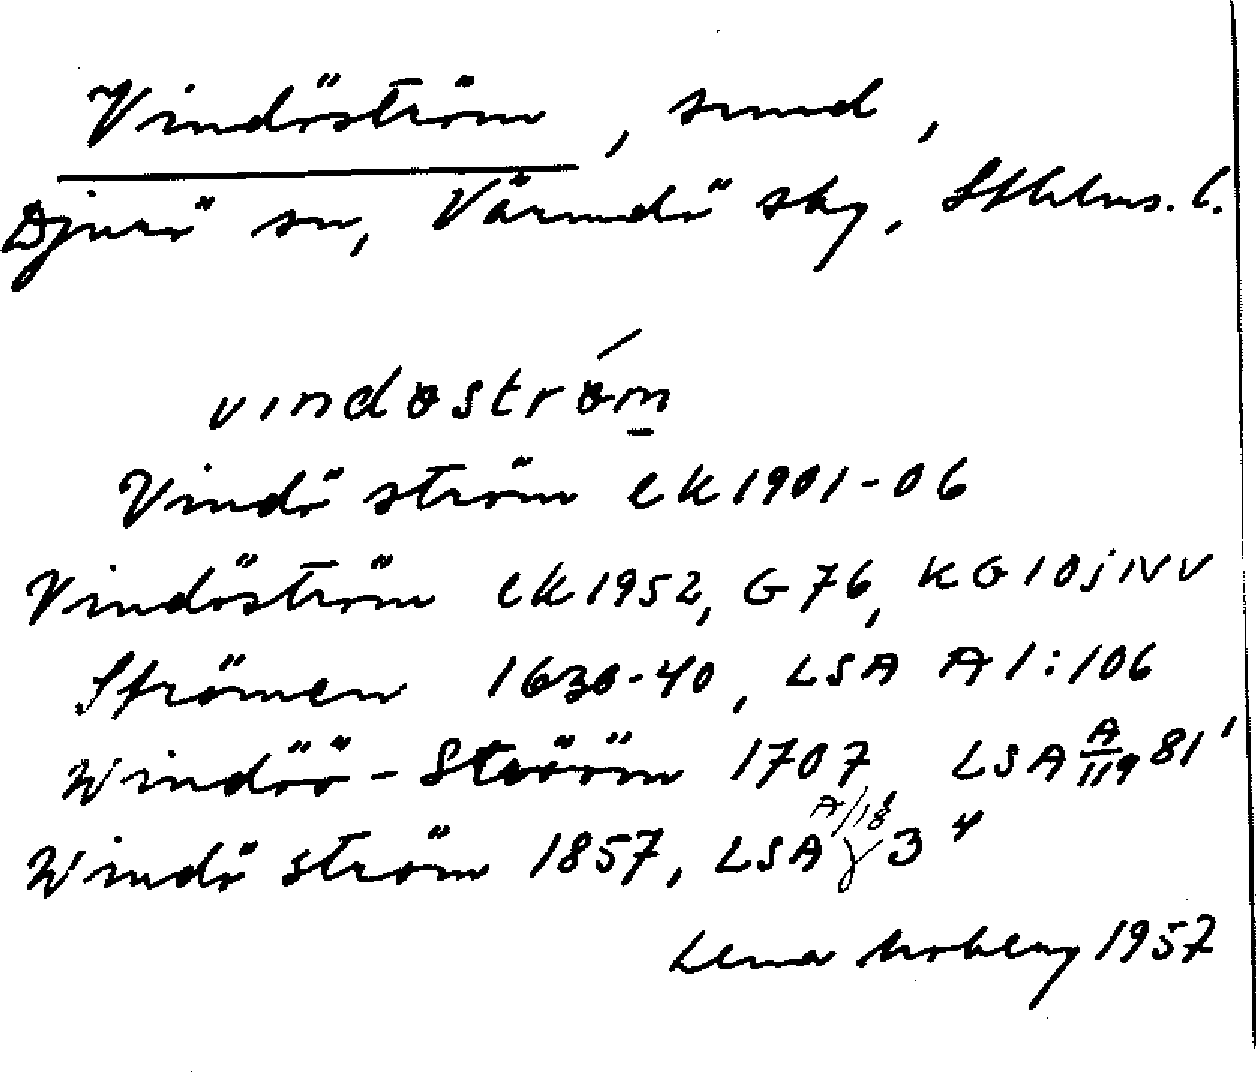 Vindöström, sund,
Djurö sn, Värmdö skg, Sthlms. l.
vindöström
Vindö ström ek 1901-06
Vindöström ek 1952, G 76, KG 10j NV
Strömen 1630-40, LSA A 1:106
Windöö-Strööm 1707 LSA A 119 81'
Windö ström 1857, LSA A/18 3 4
Lena Moberg 1957